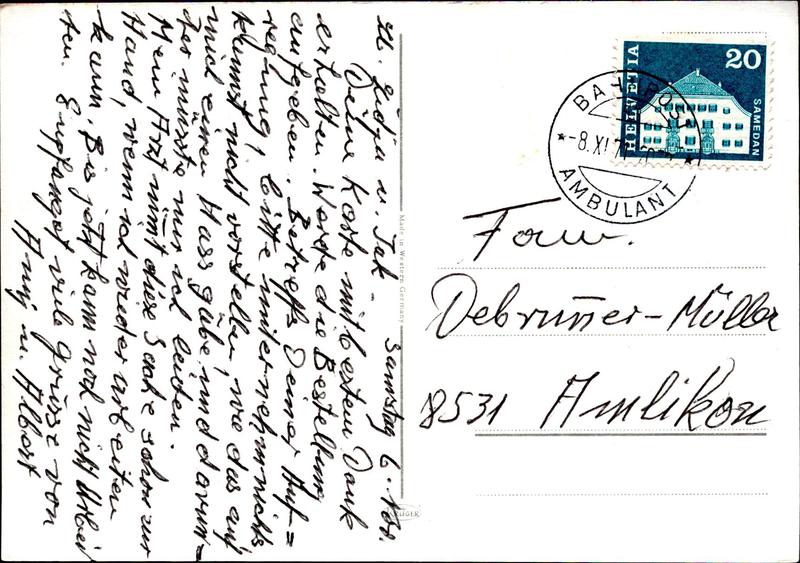 Samstag 6. Nov.
Lb. Lidja u. Jak.
Deine Karte mit bestem Dank
erhalten. Werde die Bestellung
aufgeben. Betreffs Deiner Auf=
regung, bitte unternehm nichts
kannst nicht vorstellen, wie das auf
mich einen Hass gäbe, und darun=
ter müsste nur ich leiden.
Mein Arzt nimt diese Sache schon zur
Hand, wenn ich wieder arbeiten
kann. Bis jetzt kann noch nicht Arbei
ten. Empfanget viele Grüsse von
Anny u. Albert
Made in Western Germany
KRÜGER
HELVETIA
20
SAMEDAN
BAHNPOST
-8.XI.7
AMBULANT
Fam.
Debrunner-Müller
8531 Amlikon